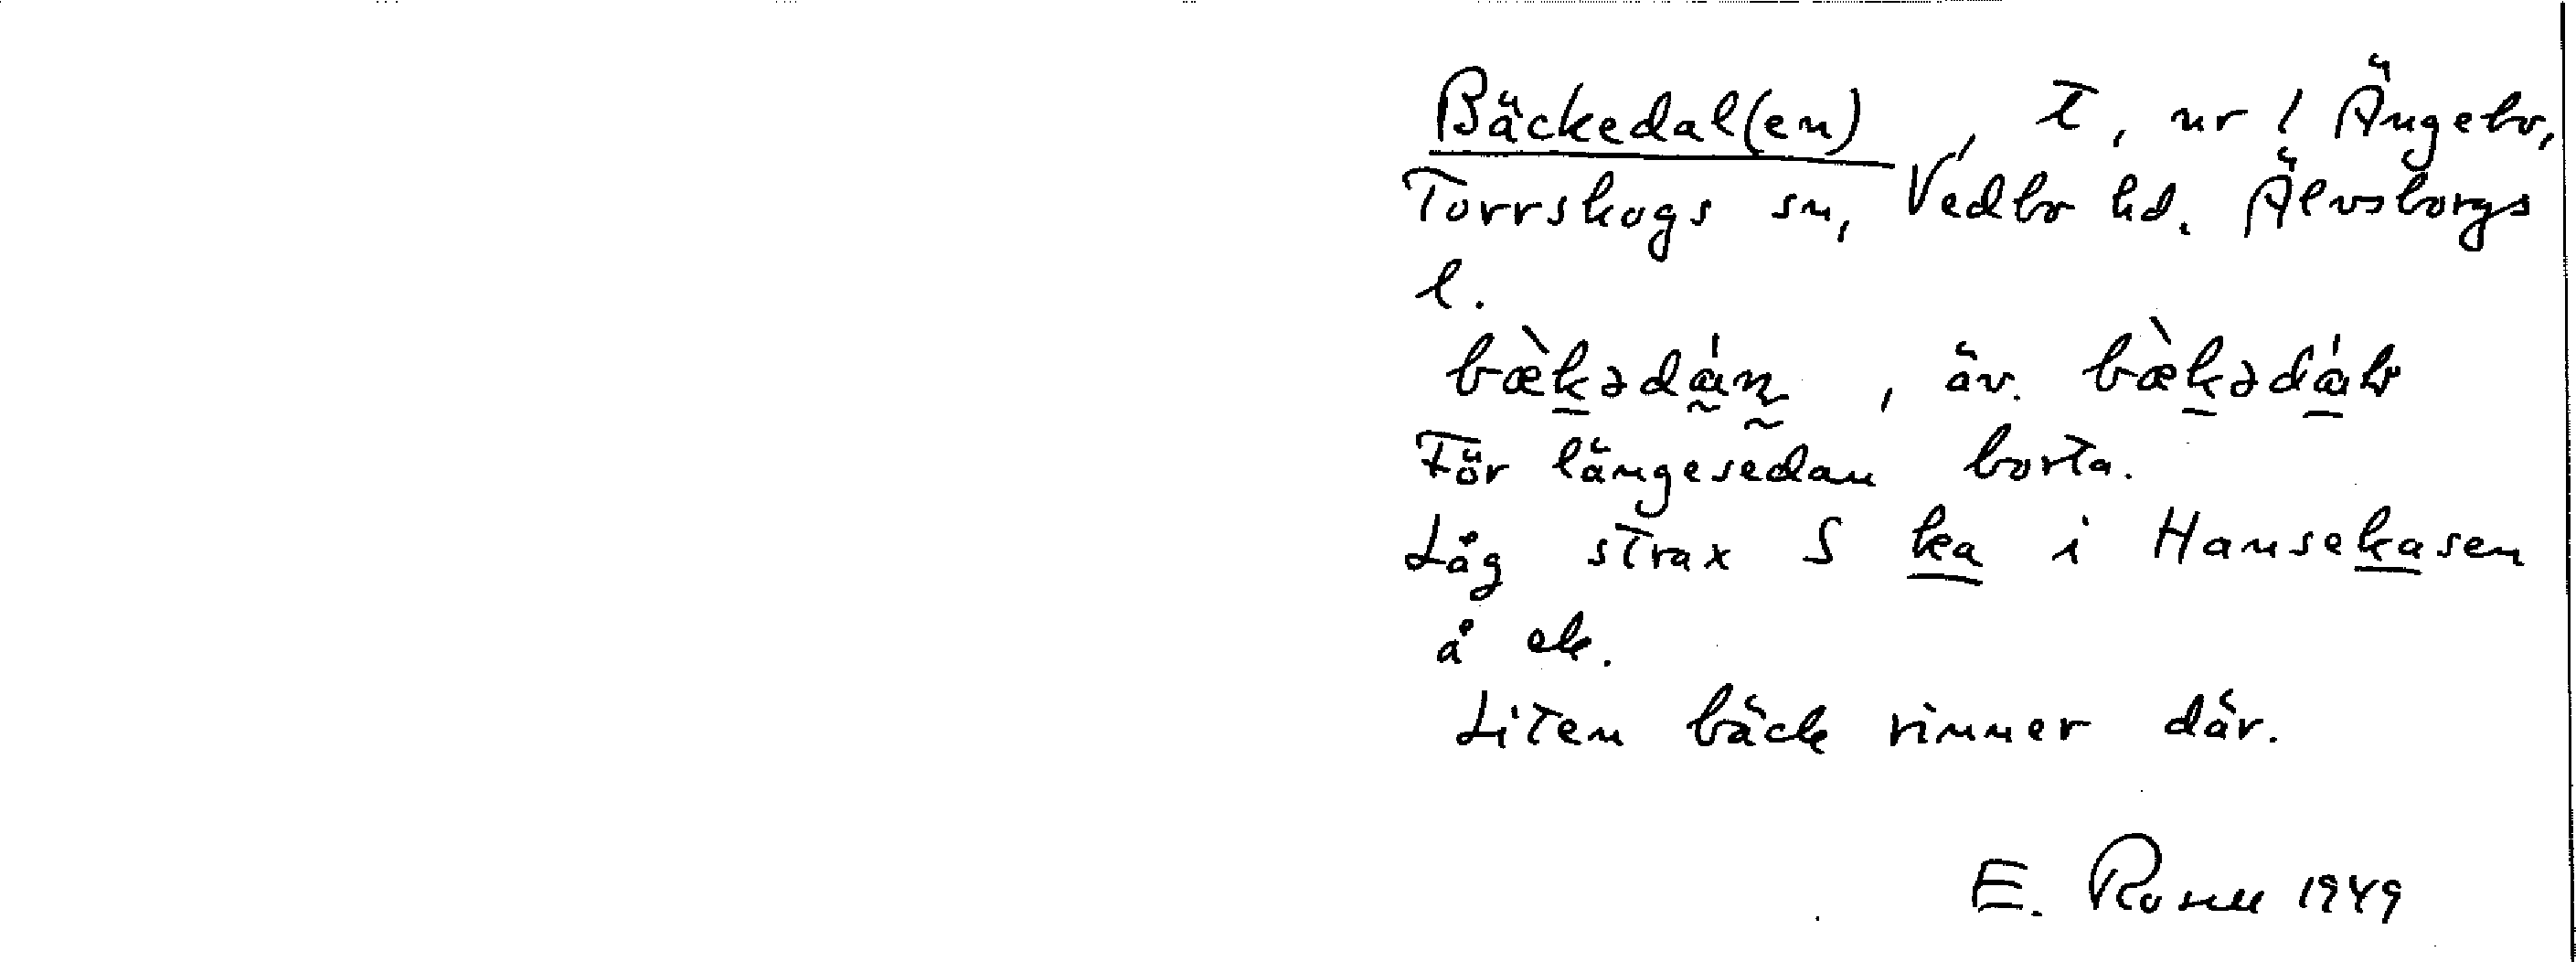 Bäckedal(en), t, nr 1 Ängebo,
Torrskogs sn, Vedbo hd. Älvsborgs
l.
bæ̀kədán, äv. bæ̀kədáɫ
För längesedan borta.
Låg strax S ka i Hansekasen
å ek.
Liten bäck rinner där.
E. Rosell 1949